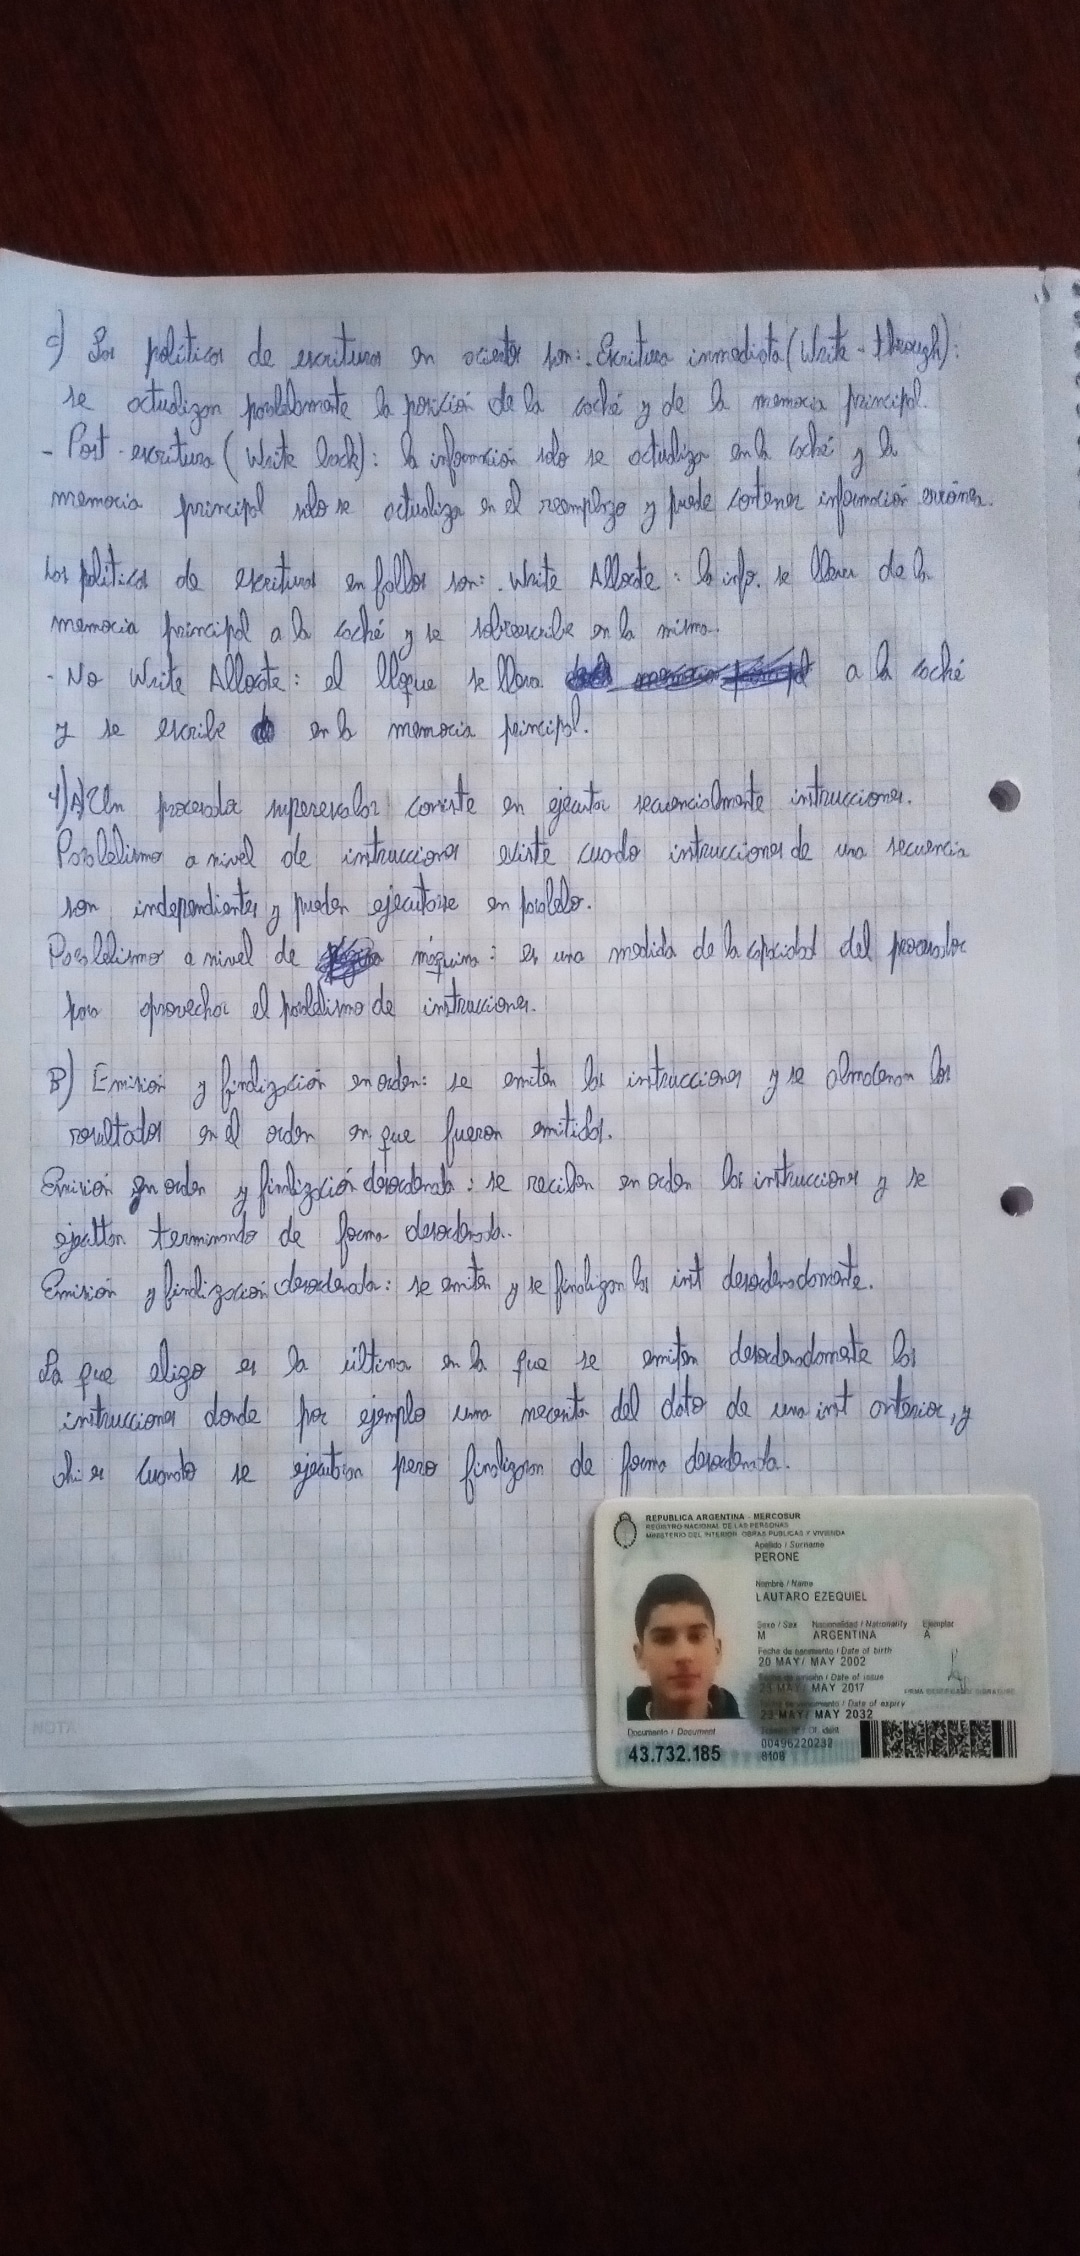 c) Las políticas de escrituras en aciertos son: - Escritura inmediata (Write - through):
se actualizan paralelamente la posición de la caché y de la memoria principal.
- Post-escritura (Write back): la información solo se actualiza en la caché y la
memoria principal solo se actualiza en el reemplazo y puede contener información errónea.
Las políticas de escrituras en fallos son: - Write Allocate: la info. se lleva de la
memoria principal a la caché y se sobreescribe en la misma.
- No Write Allocate: el bloque se lleva a la caché
y se escribe en la memoria principal.
4) A) Un procesador superescalar consiste en ejecutar secuencialmente instrucciones.
Paralelismo a nivel de instrucciones existe cuando instrucciones de una secuencia
son independientes y pueden ejecutarse en paralelo.
Paralelismo a nivel de máquina: es una medida de la capacidad del procesador
para aprovechar el paralelismo de instrucciones.
B) Emisión y finalización en orden: se emiten las instrucciones y se almacenan los
resultados en el orden en que fueron emitidos.
Emisión en orden y finalización desordenada: se reciben en orden las instrucciones y se
ejecutan terminando de forma desordenada.
Emisión y finalización desordenada: se emiten y se finalizan las inst desordenadamente.
La que eligo es la última en la que se emiten desordenadamente las
instrucciones donde por ejemplo una necesita del dato de una inst anterior, y
ahi es cuando se ejecutan pero finalizaron de forma desordenada.
REPUBLICA ARGENTINA - MERCOSUR
REGISTRO NACIONAL DE LAS PERSONAS
MINISTERIO DEL INTERIOR, OBRAS PUBLICAS Y VIVIENDA
Apellido / Surname
PERONE
Nombre / Name
LAUTARO EZEQUIEL
Sexo / Sex Nacionalidad / Nationality Ejemplar
M ARGENTINA A
Fecha de nacimiento / Date of birth
20 MAY/ MAY 2002
Fecha de emisión / Date of issue
23 MAY/ MAY 2017
Fecha de vencimiento / Date of expiry
23 MAY/ MAY 2032
Documento / Document
43.732.185
00496220232
8108
NOTA